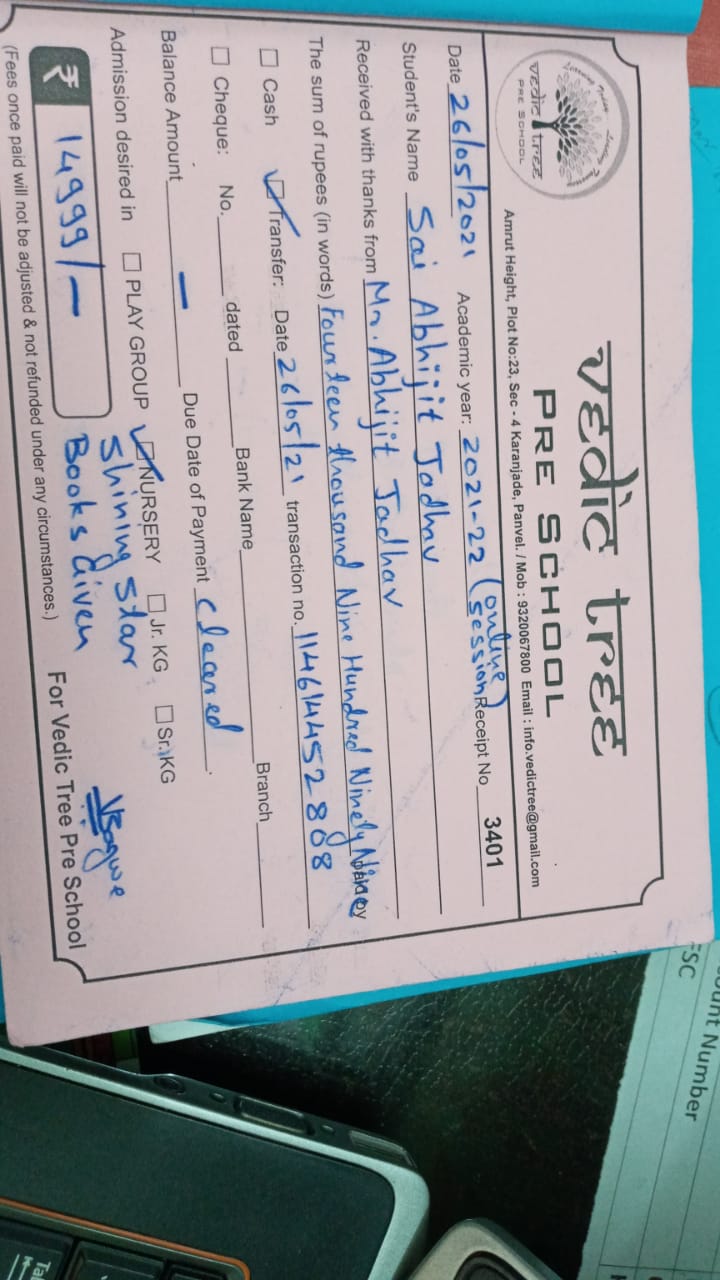 vedic tree
PRE SCHOOL
Learning
vedic tree
PRE SCHOOL
Amrut Height, Plot No:23, Sec - 4 Karanjade, Panvel. / Mob : 9320067800 Email : info.vedictree@gmail.com
Date 26/05/2021 Academic year: 2021-22 (online session) Receipt No 3401
Student's Name Sai Abhijit Jadhav
Received with thanks from Mr. Abhijit Jadhav
The sum of rupees (in words) Fourteen thousand Nine Hundred Ninety Nine
Cash Transfer: Date 26/05/21 transaction no. 114614452808
Cheque: No. dated Bank Name Branch
Balance Amount — Due Date of Payment cleared.
Admission desired in PLAY GROUP NURSERY Jr. KG Sr. KG
Shining Star
₹ 14999/- Books Given
For Vedic Tree Pre School
(Fees once paid will not be adjusted & not refunded under any circumstances.)
FSC
ount Number